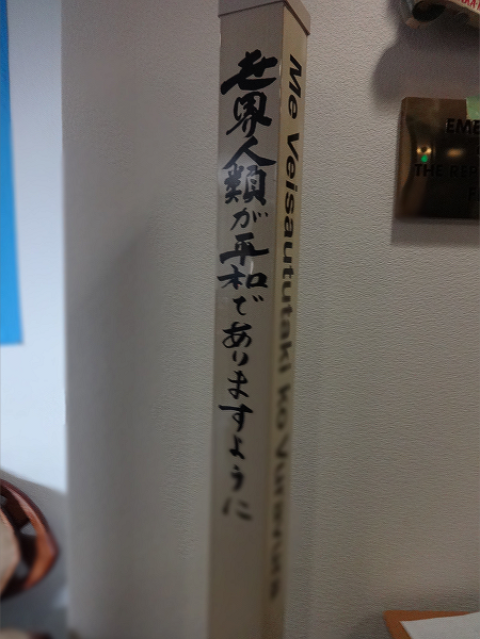 世界人類が平和でありますように
Me Veisaututaki ko Vuravura
THE